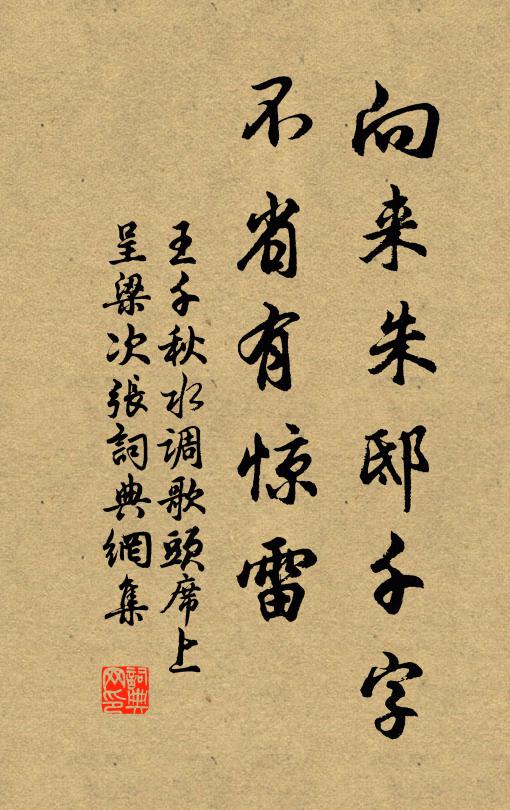 向来朱邸千字
不省有惊雷
王千秋水调歌頭席上
呈梁次張詞典網集
詞典
网印